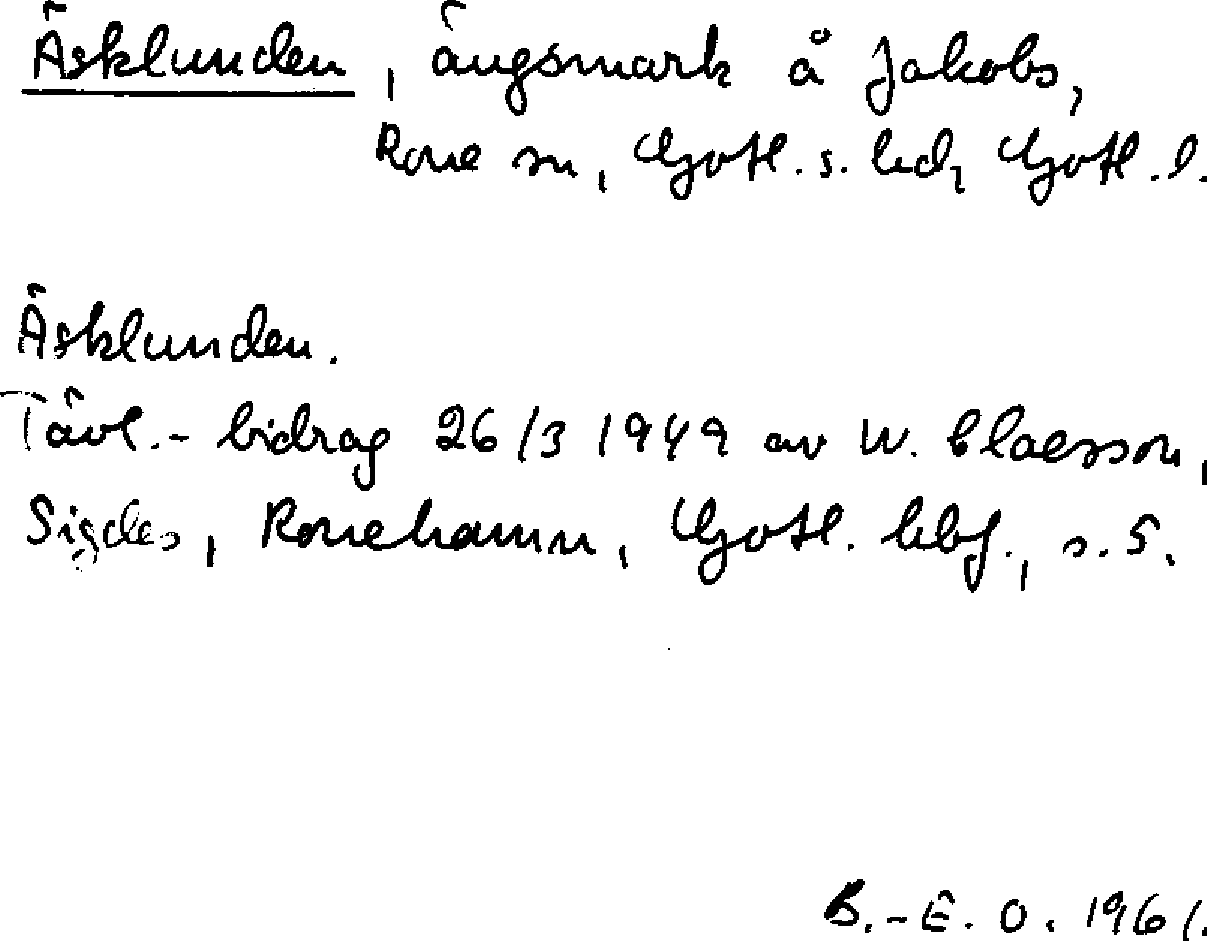 Äsklunden, ängsmark å Jakobs,
Rone sn, Gotl. s. hd, Gotl. l.
Äsklunden.
Tävl.-bidrag 26/3 1949 av W. Claesson,
Sigdes, Ronehamn, Gotl. hbf., s. 5.
B.-E. O. 1961.